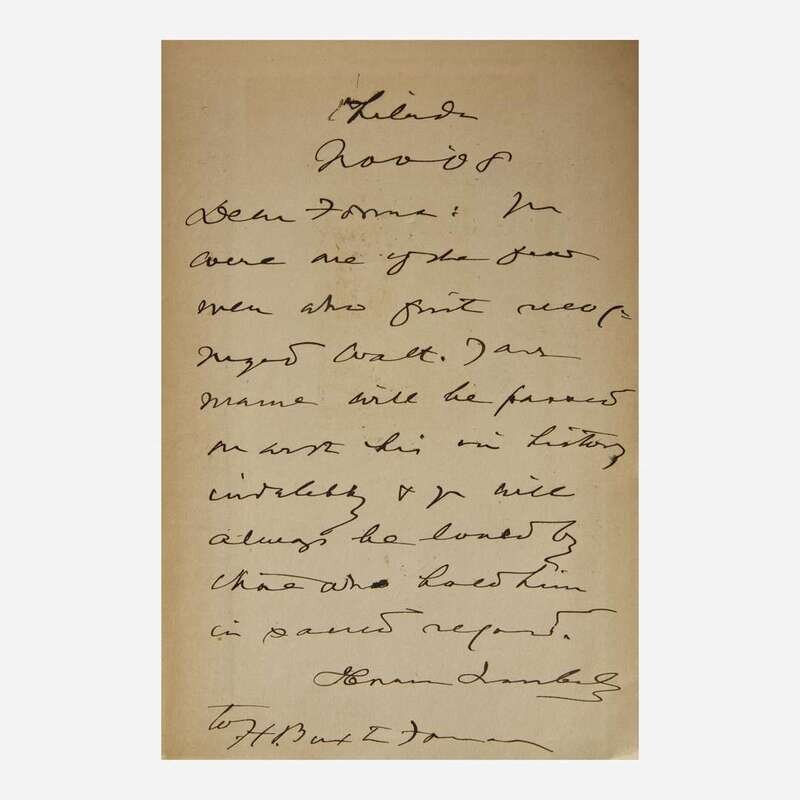 Philada
Nov 08
Dear Forman: You
were one of the few
men who first recog=
nized Walt. Your
name will be passed
on with his in history
indelibly & you will
always be loved by
those who hold him
in sacred regard.
Horace Traubel
to H. Buxton Forman